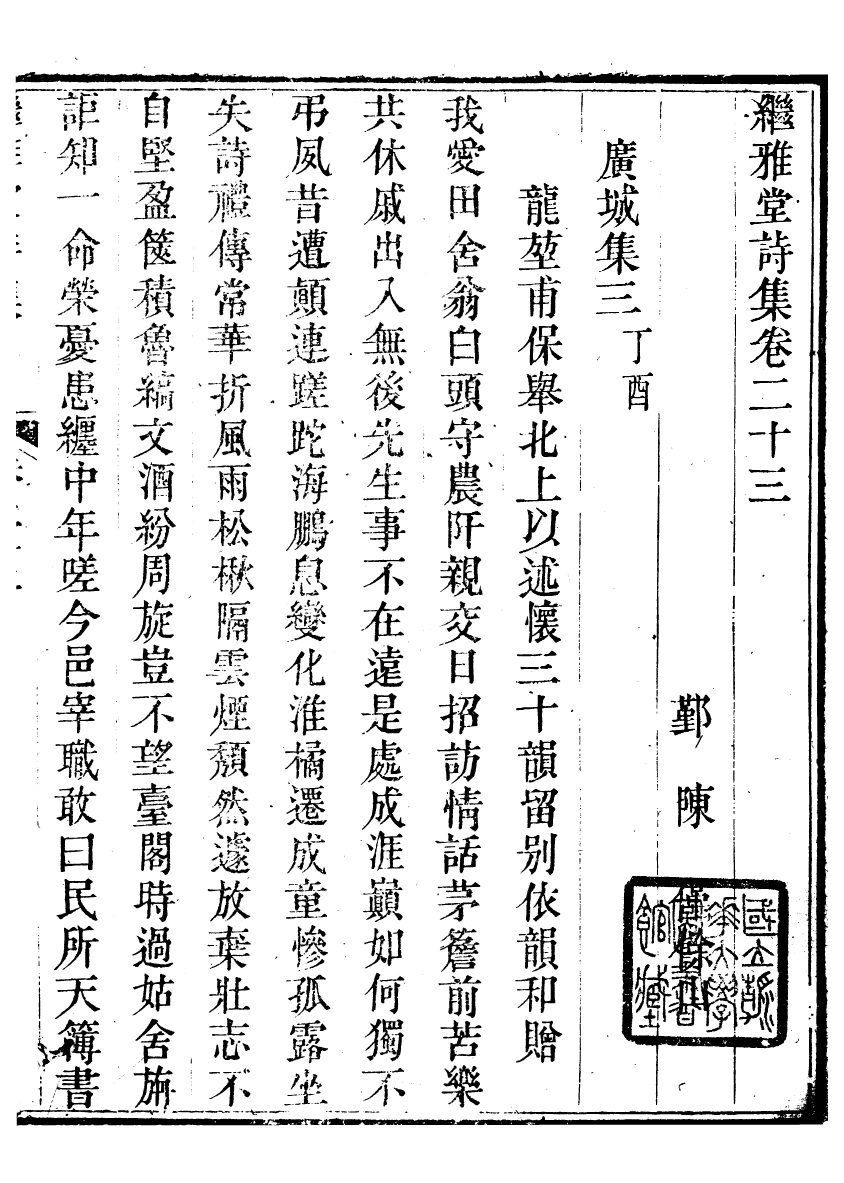 繼雅堂詩集卷二十三
鄞　陳
廣城集三　丁酉
龍堃甫保舉北上以述懷三十韻留别依韻和贈
我愛田舍翁白頭守農阡親交日招訪情話茅簷前苦樂
共休戚出入無後先生事不在遠是處成涯巔如何獨不
弔夙昔遭顛連蹉跎海鵬息變化淮橘遷成童慘孤露坐
失詩禮傳常華折風雨松楸隔雲煙頽然遽放棄壯志不
自堅盈篋積魯縞文酒紛周旋豈不望臺閣時過姑舍旃
詎知一命榮憂患纏中年嗟今邑宰職敢曰民所天簿書